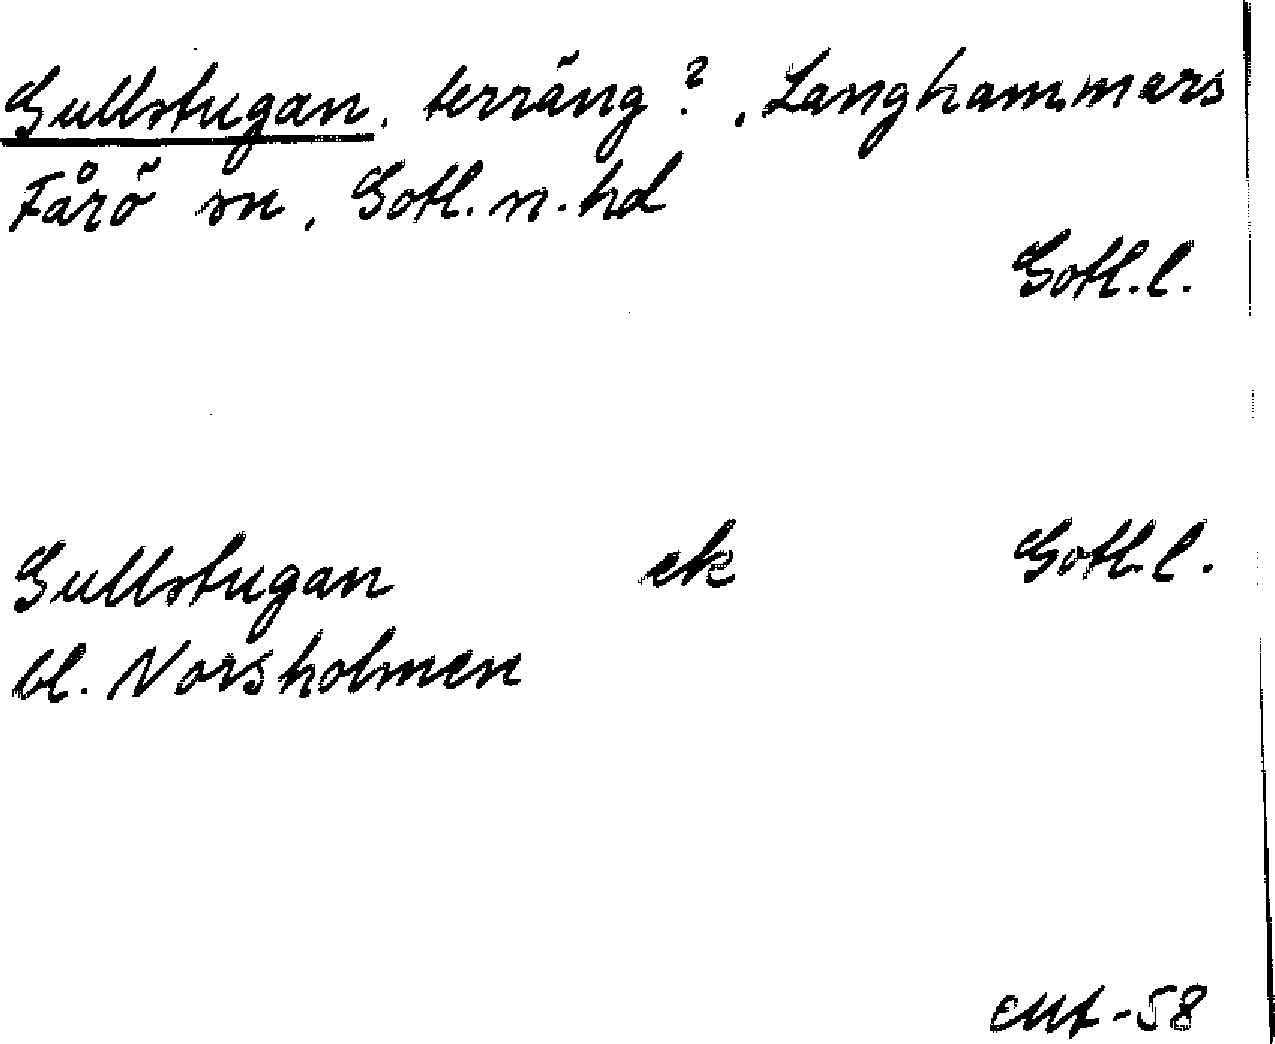 Gullstugan, terräng?, Langhammars
Fårö sn, Gotl. n. hd
Gotl. l.
Gullstugan ek Gotl. l.
bl. Norsholmen
-58